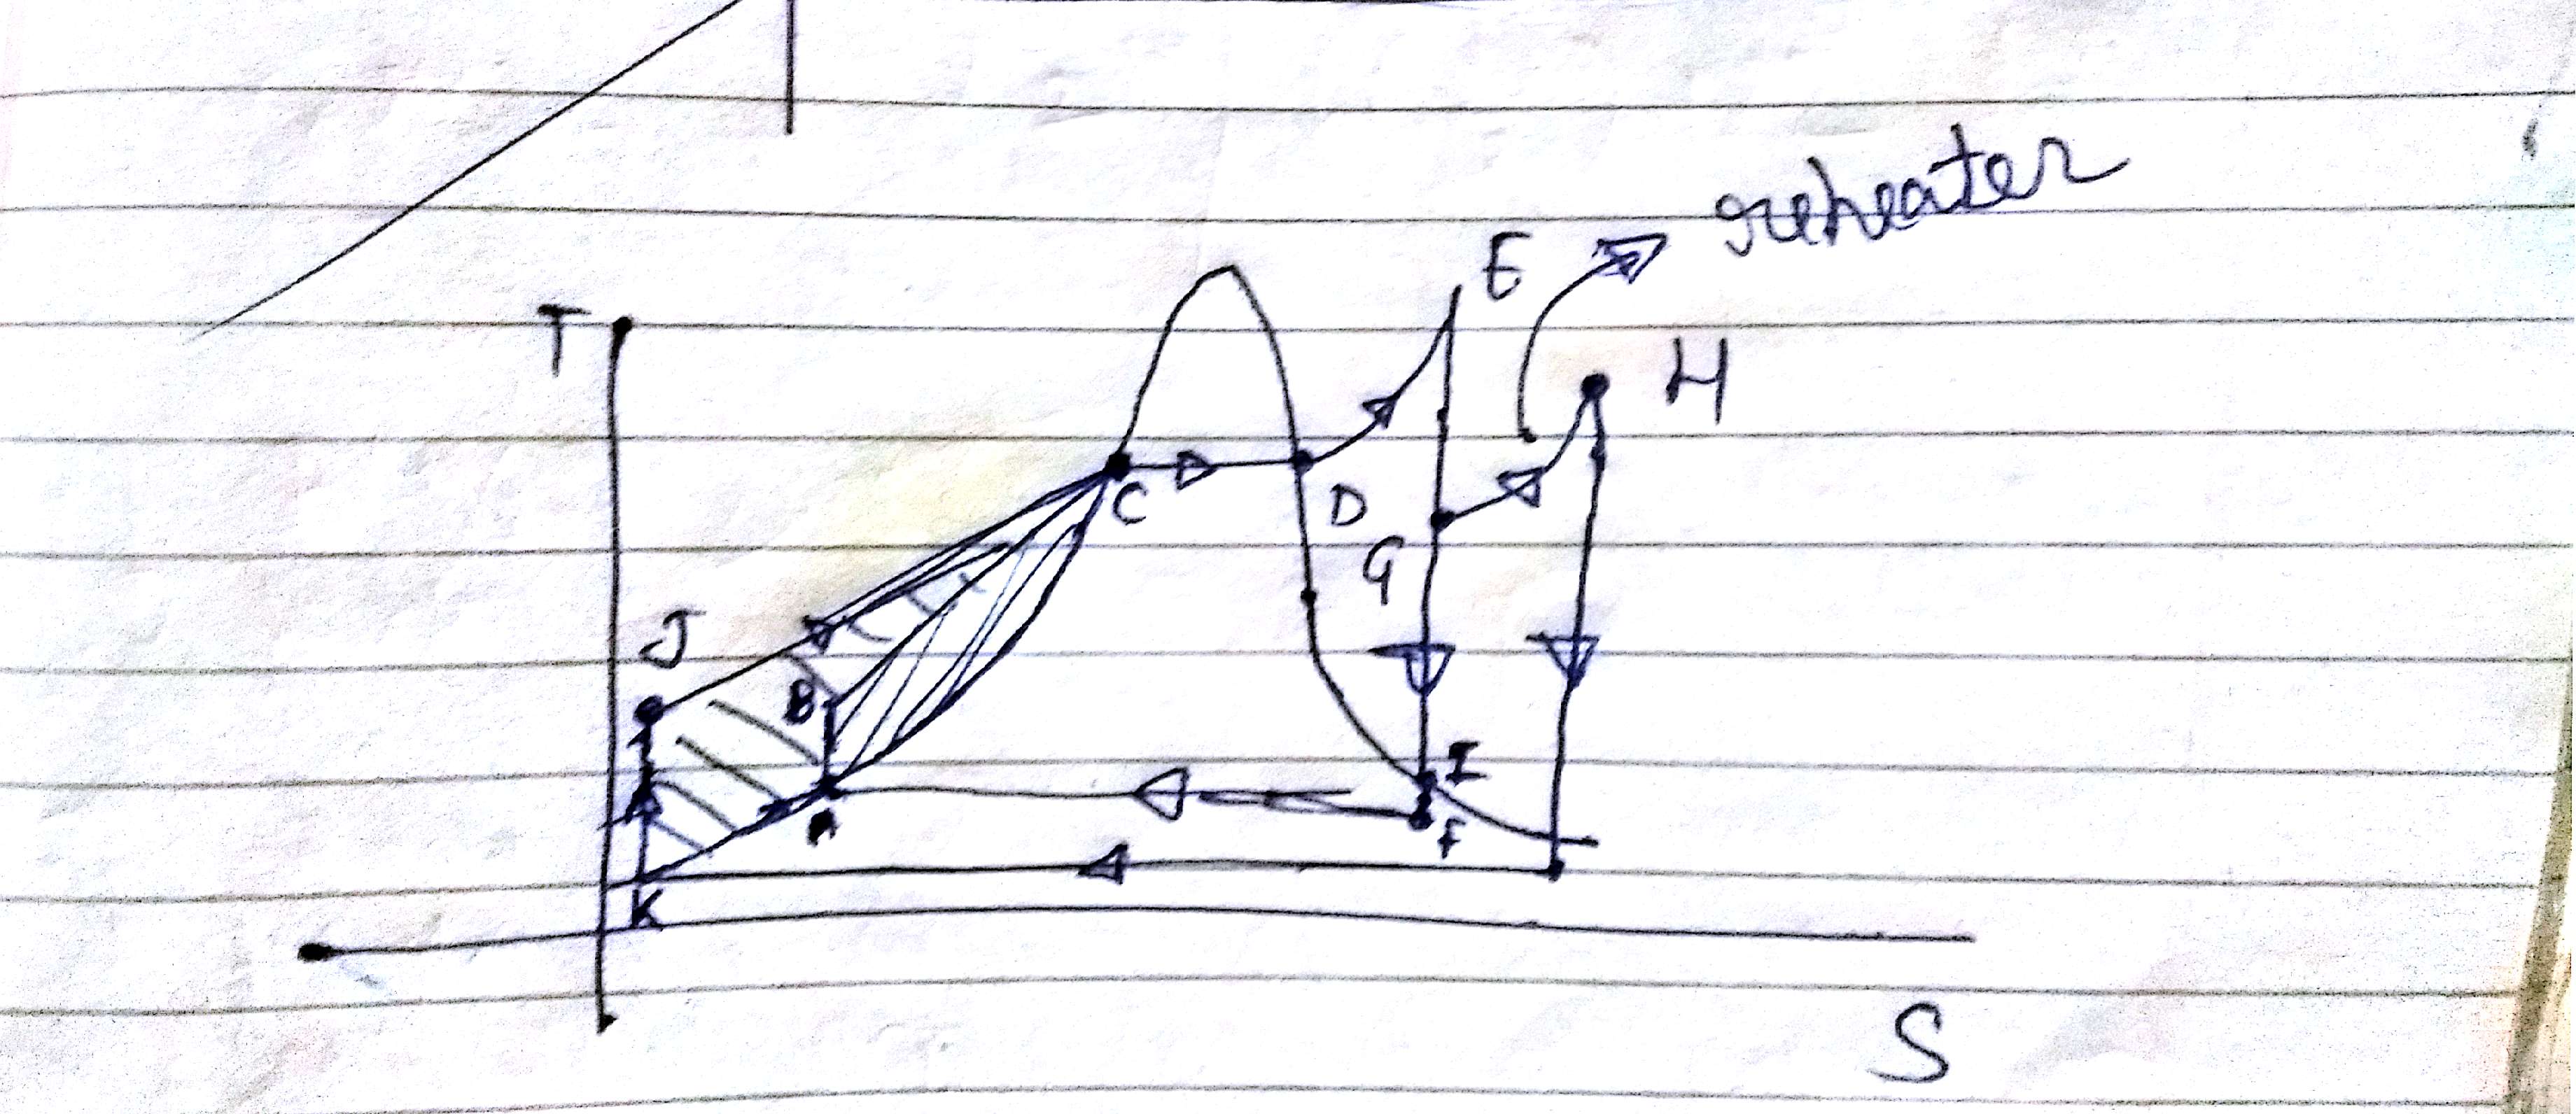 reheater
E
T
H
C
D
G
J
B
I
A
F
K
S